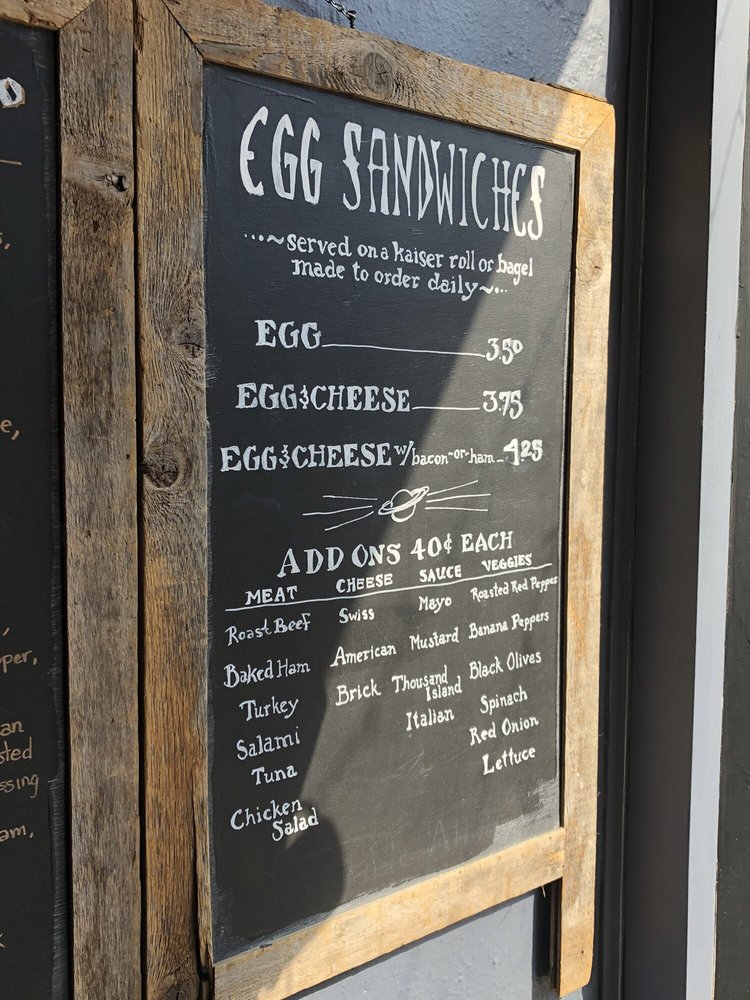 EGG SANDWICHES
...~served on a kaiser roll or bagel
made to order daily~...
EGG 3.50
EGG & CHEESE 3.75
EGG & CHEESE w/bacon-or-ham 4.25
ADD ONS 40¢ EACH
MEAT CHEESE SAUCE VEGGIES
Roast Beef
Baked Ham
Turkey
Salami
Tuna
Chicken
Salad
Swiss
American
Brick
Mayo
Mustard
Thousand
Island
Italian
Roasted Red Pepper
Banana Peppers
Black Olives
Spinach
Red Onion
Lettuce